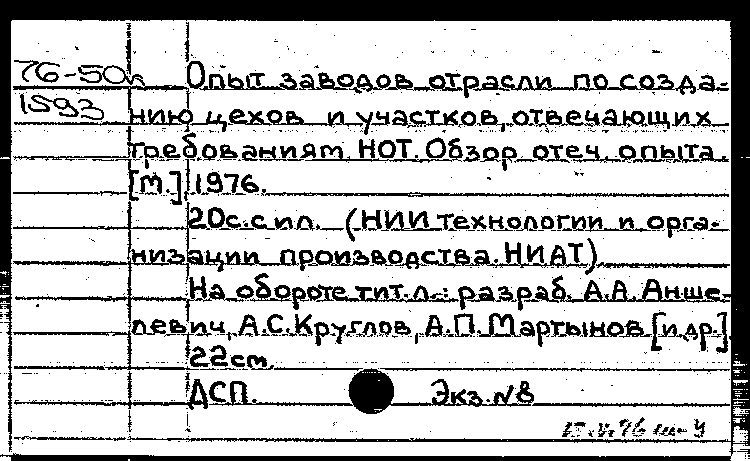 76-50л Опыт заводов отрасли по созда-
1593 нию цехов и участков, отвечающих
требованиям НОТ. Обзор отеч. опыта.
[М.], 1976.
20с. с ил. (НИИ технологии и орга-
низации производства. НИАТ)
На обороте тит. л.: разраб. А.А. Анше-
левич, А.С. Круглов, А.П. Мартынов [и др.].
22см.
ДСП. Экз. №8